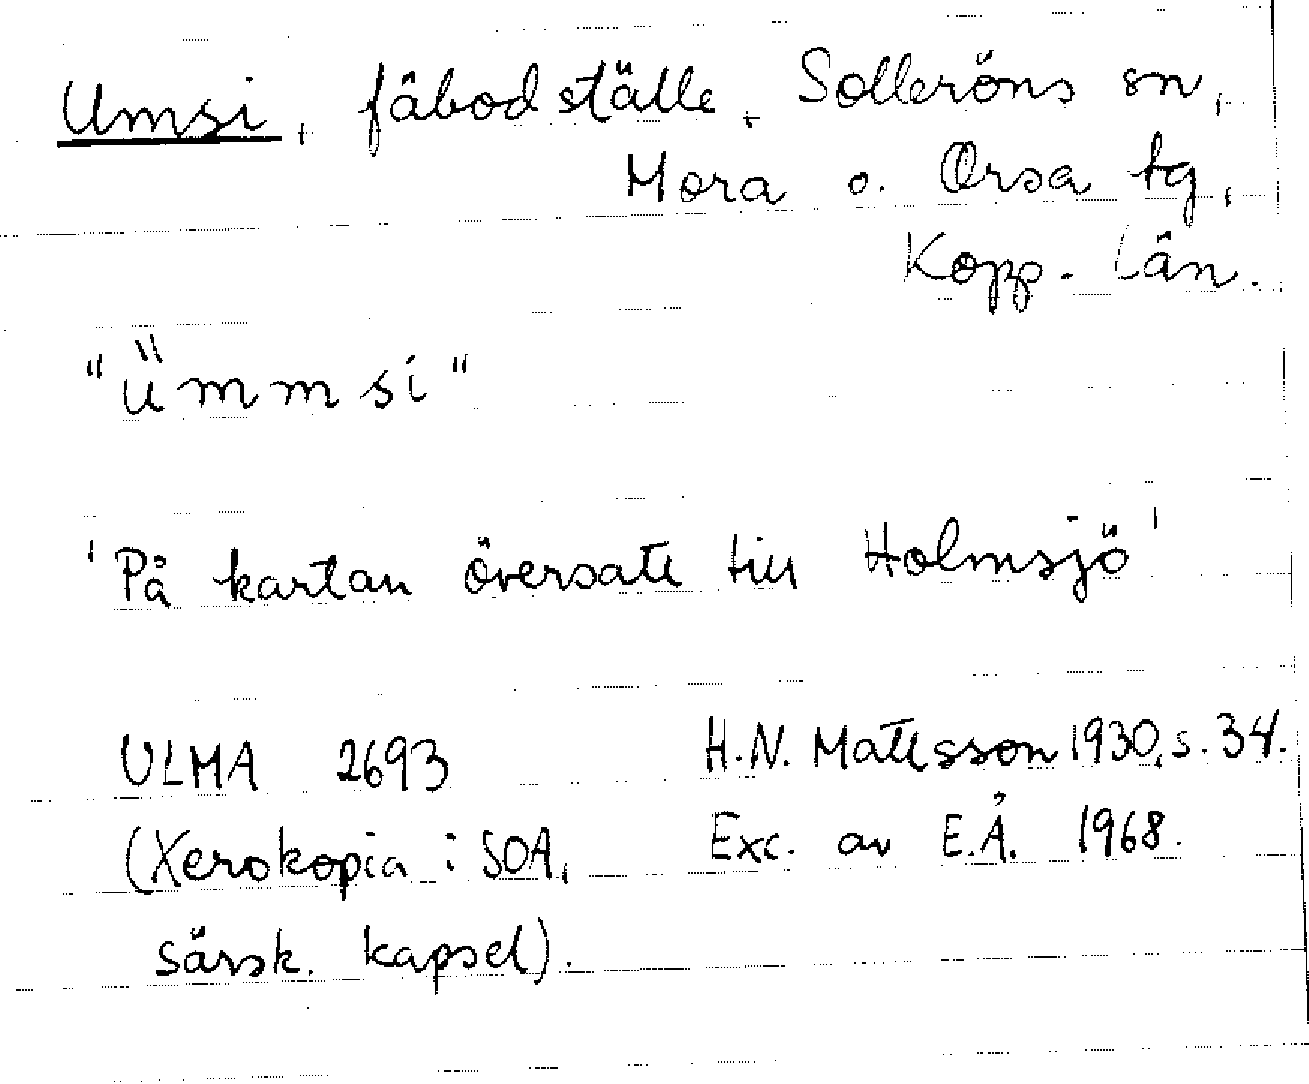 Umsi, fäbodställe, Solleröns sn,
Mora o. Orsa tg,
Kopp. län.
"ümmsi"
'På kartan översatt till Holmsjö'
ULMA 2693 H.N. Mattsson 1930, s. 34.
(Xerokopia i SOA, Exc. av E.Å. 1968.
särsk. kapsel).